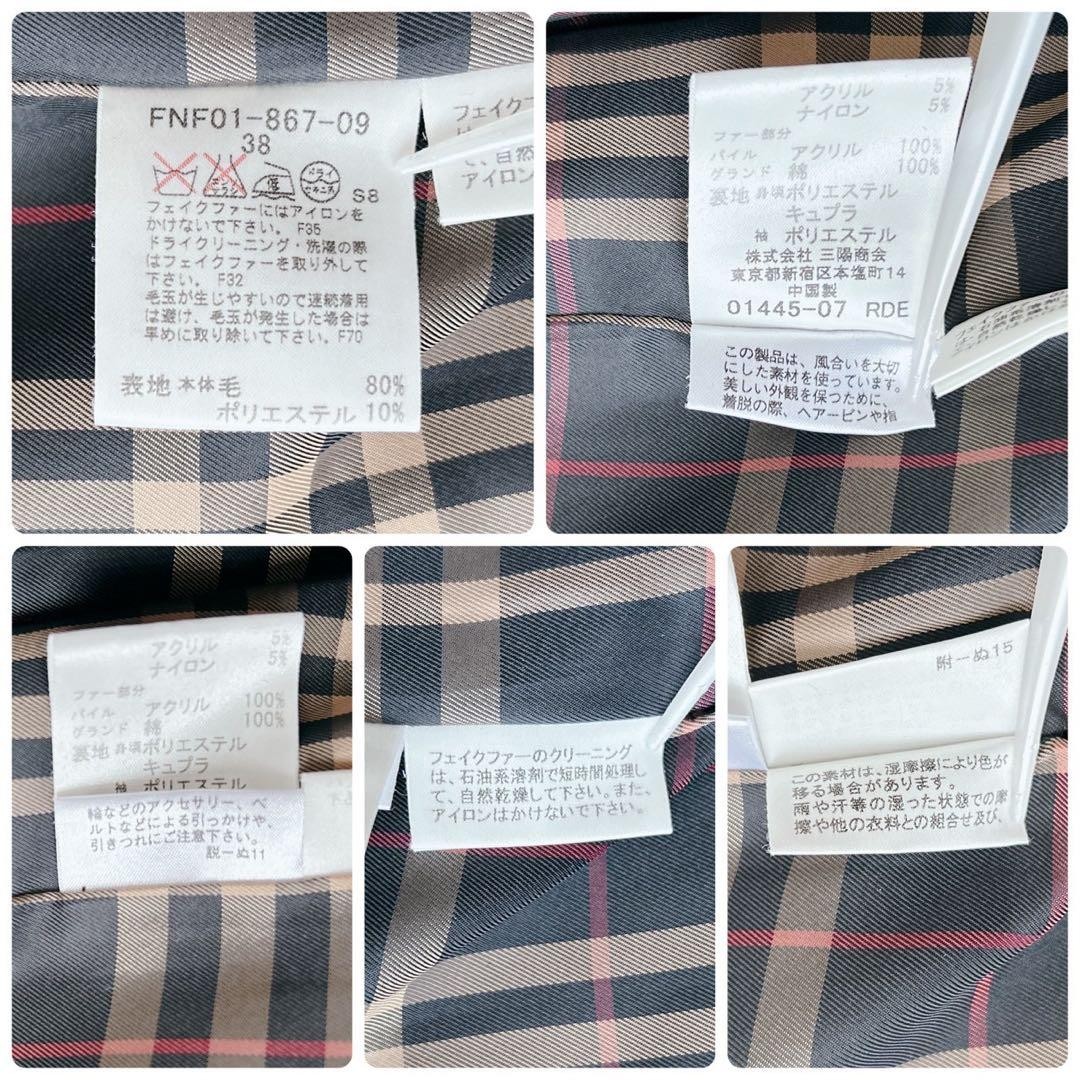 FNF01-867-09
38
低
ドライ
セキユ系
S8
フェイクファーにはアイロンを
かけないで下さい。F35
ドライクリーニング・洗濯の際
はフェイクファーを取り外して
下さい。F32
毛玉が生じやすいので連続着用
は避け、毛玉が発生した場合は
早めに取り除いて下さい。F70
表地 本体 毛 80%
ポリエステル 10%
フェイクファ
は
て、自然
アイロン
アクリル 5%
ナイロン 5%
ファー部分
パイル アクリル 100%
グランド 綿 100%
裏地 身頃 ポリエステル
キュプラ
袖 ポリエステル
株式会社 三陽商会
東京都新宿区本塩町14
中国製
01445-07 RDE
この製品は、風合いを大切
にした素材を使っています。
美しい外観を保つために、
着脱の際、ヘアーピンや指
アクリル 5%
ナイロン 5%
ファー部分
パイル アクリル 100%
グランド 綿 100%
裏地 身頃 ポリエステル
キュプラ
袖 ポリエステル
輪などのアクセサリー、ベ
ルトなどによる引っかけや、
引きつれにご注意下さい。
説ーぬ11
フェイクファーのクリーニング
は、石油系溶剤で短時間処理し
て、自然乾燥して下さい。また、
アイロンはかけないで下さい。
附ーぬ15
この素材は、湿摩擦により色が
移る場合があります。
雨や汗等の湿った状態での摩
擦や他の衣料との組合せ及び、